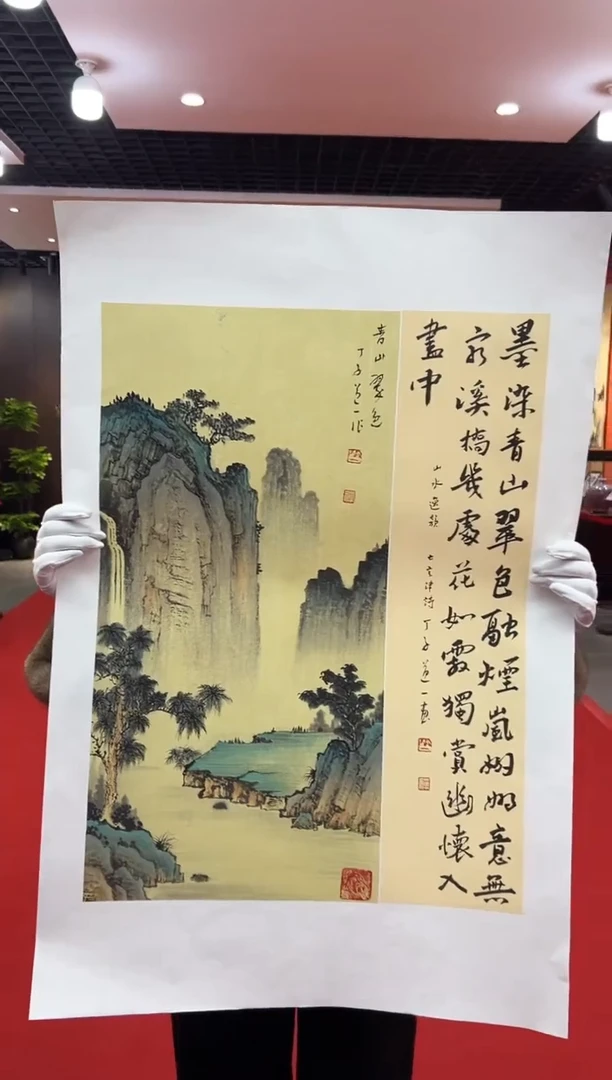 墨染青山翠色融煙嵐嫋嫋意無
窮溪橋幾處花如霰獨賞幽懷入
畫中
山水逸韻 七言律詩 丁子道一書
青山翠色
丁子道一作